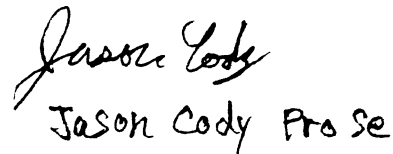 Jason Cody
Jason Cody Pro se